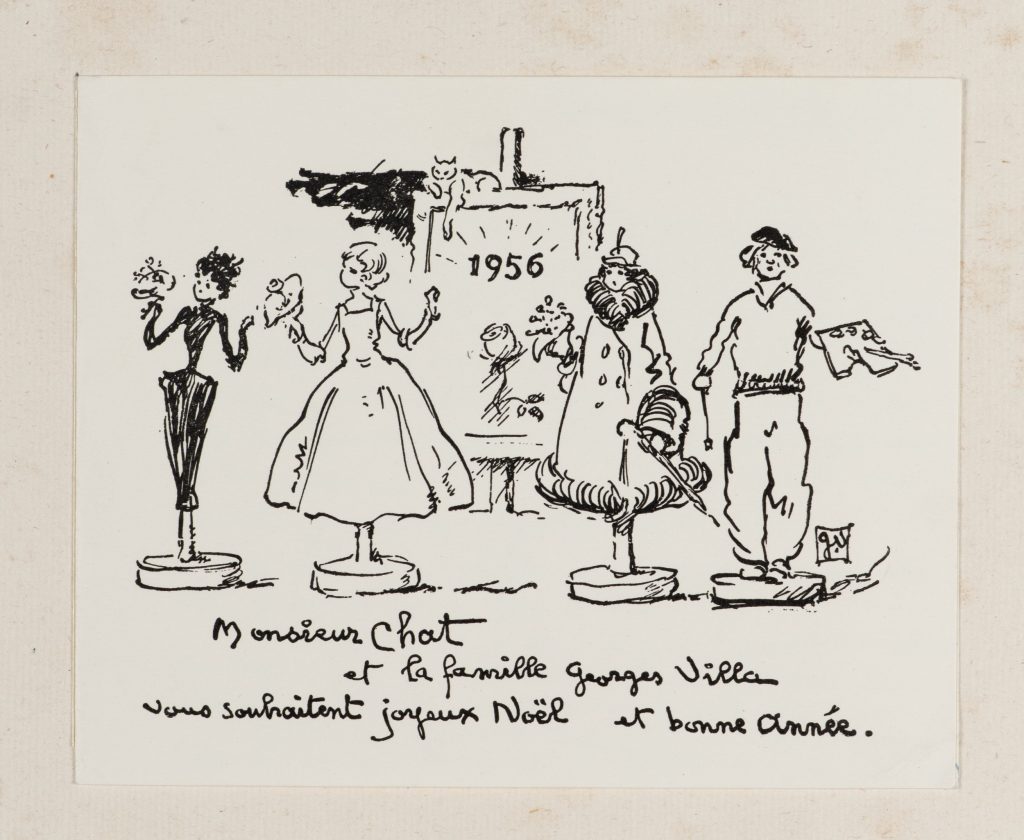 1956
Monsieur Chat
et la famille Georges Villa
vous souhaitent joyeux Noël et bonne année.